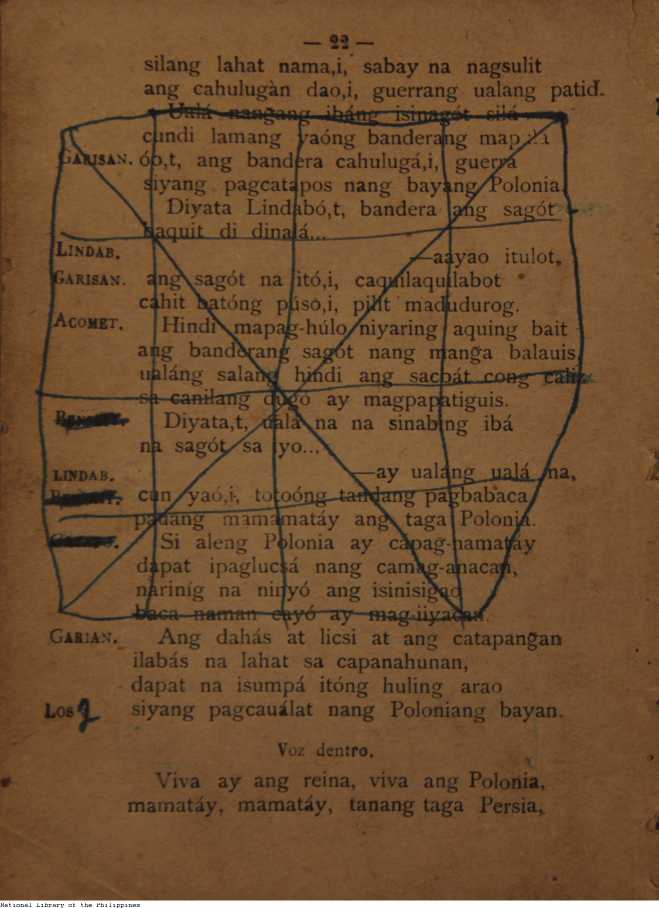 — 22 —
silang lahat nama,i, sabay na nagsulit
ang cahulugàn dao,i, guerrang ualang patid.
Ualá nangang ibáng isinagót silá
cundi lamang yaóng banderang map
GARISAN. óo,t, ang bandera cahulugá,i, guerrá
siyang pagcatapos nang bayang Polonia.
Diyata Lindabó,t, bandera ang sagót
baquit di dinalá...
LINDAB. —aayao itulot,
GARISAN. ang sagót na itó,i, caquilaquilabot
cahit batóng púso,i, pilit madudurog.
ACOMET. Hindi mapag-húlo niyaring aquing bait
ang banderang sagót nang mang̃a balauis,
ualáng salang hindi ang sacbát cong caliz
sa canilang dugó ay magpapatiguis.
Diyata,t, ualá na na sinabing ibá
na sagót sa iyo...
LINDAB. —ay ualáng ualá na,
cun yaó,i, totoóng tandang pagbabaca
pádang mamamatáy ang taga Polonia.
Si aleng Polonia ay capag-namatáy
dapat ipaglucsá nang camag-anacan,
narinig na ninyó ang isinisigao
baca naman cayó ay mag-iiyacan.
GARIAN. Ang dahás at licsi at ang catapang̃an
ilabás na lahat sa capanahunan,
dapat na isumpá itóng huling arao
Los 2 siyang pagcauálat nang Poloniang bayan.
Voz dentro.
Viva ay ang reina, viva ang Polonia,
mamatáy, mamatáy, tanang taga Persia,
National Library of the Philippines